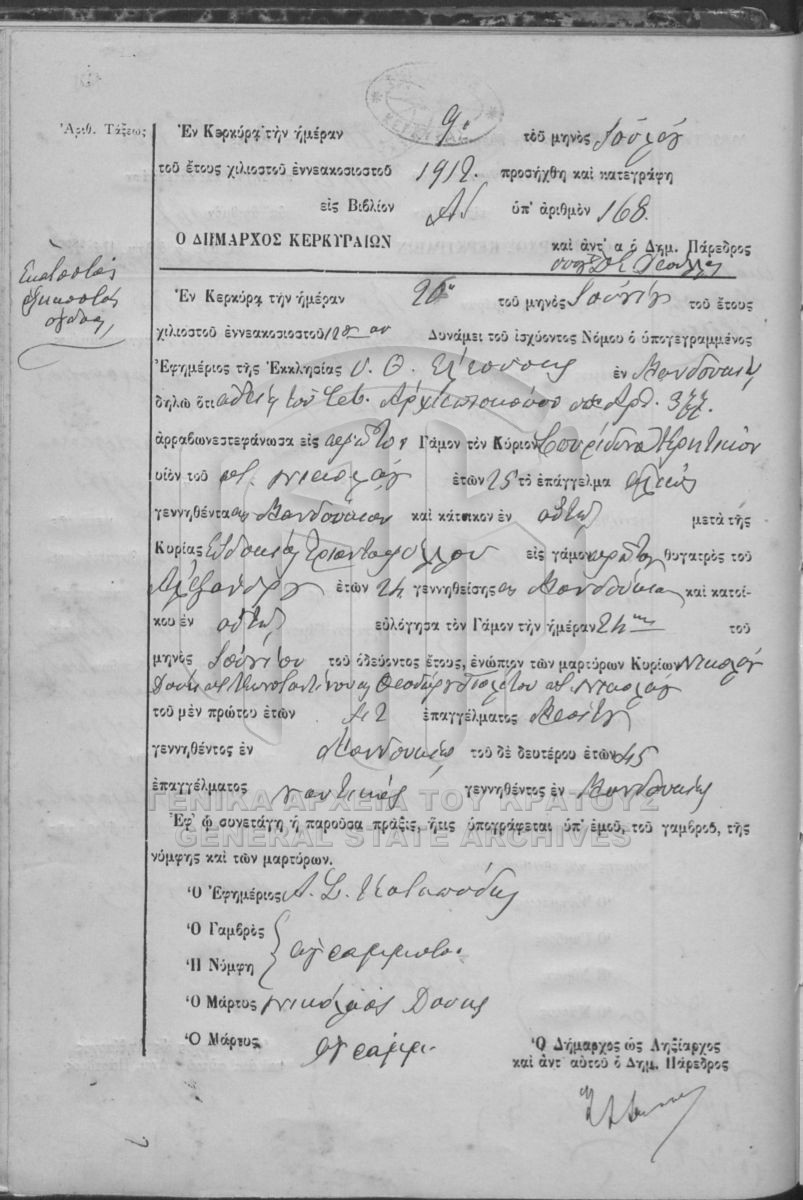 Ἀριθ. Τάξεως
Ἐν Κερκύρᾳ τὴν ἡμέραν 9ῃ τοῦ μηνὸς Ἰουλίου
τοῦ ἔτους χιλιοστοῦ ἐννεακοσιοστοῦ 1912. προσήχθη καὶ κατεγράφη
εἰς Βιβλίον ὑπ' ἀριθμὸν 168.
Ο ΔΗΜΑΡΧΟΣ ΚΕΡΚΥΡΑΙΩΝ καὶ ἀντ' α ὁ Δημ. Πάρεδρος
Ἑκατοστὸς
ἑξηκοστὸς
ὄγδοος
Ἐν Κερκύρᾳ τὴν ἡμέραν 26ῃ τοῦ μηνὸς Ἰουνίου τοῦ ἔτους
χιλιοστοῦ ἐννεακοσιοστοῦ 12ου Δυνάμει τοῦ ἰσχύοντος Νόμου ὁ ὑπογεγραμμένος
Ἐφημέριος τῆς Ἐκκλησίας Υ. Θ. Ἐλεούσης ἐν Μανδουκίῳ
δηλῶ ὅτι ἀδείᾳ τοῦ Σεβ. Ἀρχιεπισκόπου ὑπ' Ἀρθ. 377.
ἀρραβωνεστεφάνωσα εἰς πρῶτον Γάμον τὸν Κύριον Σπυρίδωνα Κρητικὸν
υἱὸν τοῦ π. Νικολάου ἐτῶν 25 τὸ ἐπάγγελμα ἁλιεὺς
γεννηθέντα εἰς Μανδούκιον καὶ κάτοικον ἐν αὐτῷ μετὰ τῆς
Κυρίας Εὐδοκίας Τριανταφύλλου εἰς γάμον πρῶτον θυγατρὸς τοῦ
Ἀλεξάνδρου ἐτῶν 24 γεννηθείσης εἰς Μανδούκιον καὶ κατοί-
κου ἐν αὐτῷ εὐλόγησα τὸν Γάμον τὴν ἡμέραν 24ην τοῦ
μηνὸς Ἰουνίου τοῦ ὁδεύοντος ἔτους, ἐνώπιον τῶν μαρτύρων Κυρίων Νικολάου
Δούκα π. Κωνσταντίνου καὶ Θεοδώρου π. Νικολάου
τοῦ μὲν πρώτου ἐτῶν 42 ἐπαγγέλματος
γεννηθέντος ἐν Μανδουκίῳ τοῦ δὲ δευτέρου ἐτῶν 45
ἐπαγγέλματος ναυτικὸς γεννηθέντος ἐν Μανδουκίῳ
ΓΕΝΙΚΑ ΑΡΧΕΙΑ ΤΟΥ ΚΡΑΤΟΥΣ
GENERAL STATE ARCHIVES
Ἐφ' ᾧ συνετάγη ἡ παροῦσα πρᾶξις, ἥτις ὑπογράφεται ὑπ' ἐμοῦ, τοῦ γαμβροῦ, τῆς
νύμφης καὶ τῶν μαρτύρων.
Ὁ Ἐφημέριος Α. Σ. Καταπόδης
Ὁ Γαμβρὸς
ἀγράμματοι
Ἡ Νύμφη
Ὁ Μάρτυς Νικόλαος Δούκας
Ὁ Μάρτυς ἀγράμμ.
Ὁ Δήμαρχος ὡς Ληξίαρχος
καὶ ἀντ' αὐτοῦ ὁ Δημ. Πάρεδρος